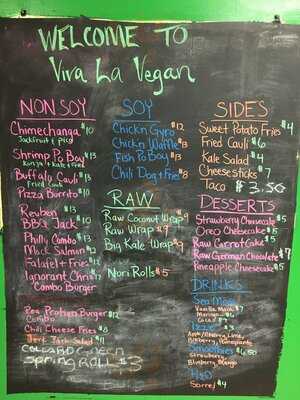 WELCOME TO
Viva La Vegan
NON SOY
Chimechanga $10
Jackfruit & Pico
Shrimp Po Boy $13
Konjat & Kale & Fries
Buffalo Cauli $13
Fried Cauli
Pizza Burrito $10
Reuben $13
BBQ Jack $10
Philly Combo $13
Mock Salmon
Falafel & Fries $12
Ignorant Chix $17
Combo Burger
Pea Protein Burger $12
Combo
Chili Cheese Fries $8
Jerk Taco Salad
COLLARD GREEN
SPRING ROLL $3
SOY
Chick'n Gyro $12
Chick'n Waffle $13
Fish Po Boy $13
Chili Dog & Fries $8
RAW
Raw Coconut Wrap $9
Raw Wrap $9
Big Kale Wrap $9
Nori Rolls $5
SIDES
Sweet Potato Fries $4
Fried Cauli $6
Kale Salad $4
Cheese sticks $7
Taco $3.50
DESSERTS
Strawberry Cheesecake $5
Oreo Cheesecake $5
Raw Carrot Cake $5
Raw German Chocolate $7
Pineapple Cheesecake $5
DRINKS
Sea Moss
Vanilla Mack $7
Smoothies $6.50
Strawberry
Blueberry Mango
H2O
Sorrel $4